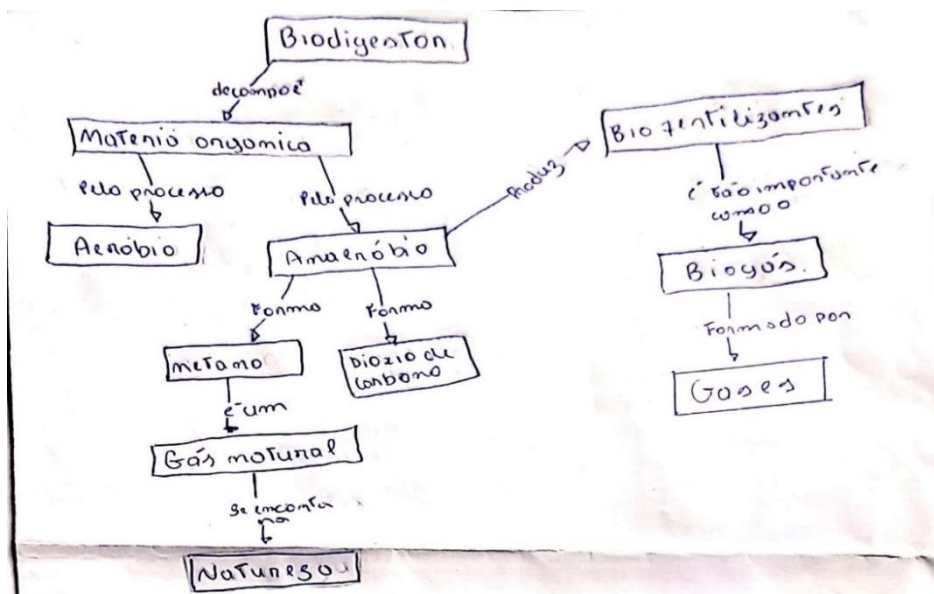 Biodigestor
decompõe
Materia organica
Pelo processo
Pelo processo
Aeróbio
Anaeróbio
Produz
Biofertilizantes
é tão importante
como o
Biogás.
Formado por
Gases
Forma
Forma
metano
Dioxio de
Carbono
é um
Gás natural
se enconta
na
Naturesa